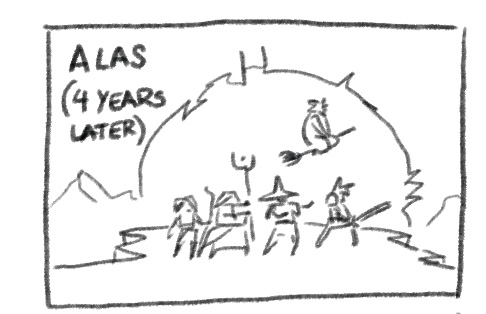 ALAS
(4 YEARS
LATER)